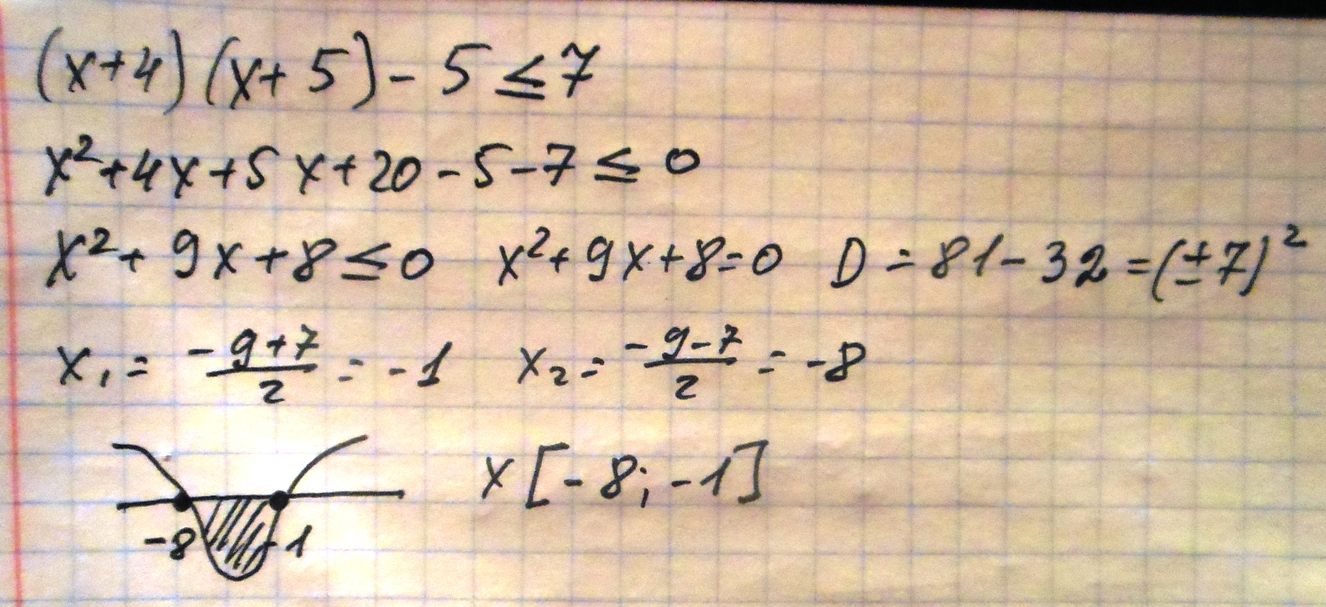 (x+4)(x+5)-5≤7
x²+4x+5x+20-5-7≤0
x²+9x+8≤0 x²+9x+8=0 D=81-32=(±7)²
x₁= -9+7/2 = -1 x₂= -9-7/2 = -8
-8 -1 x[-8;-1]